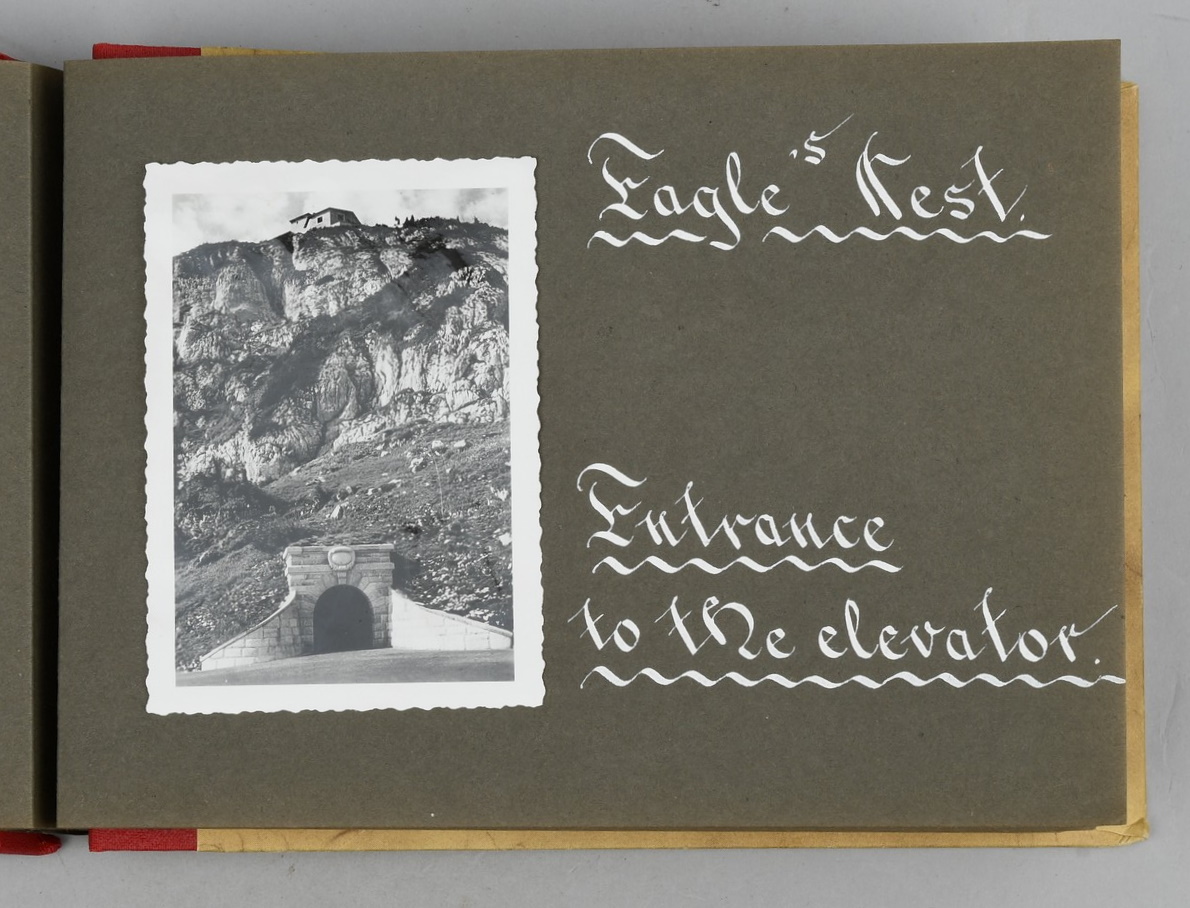 Eagle's Nest.
Entrance
to the elevator.